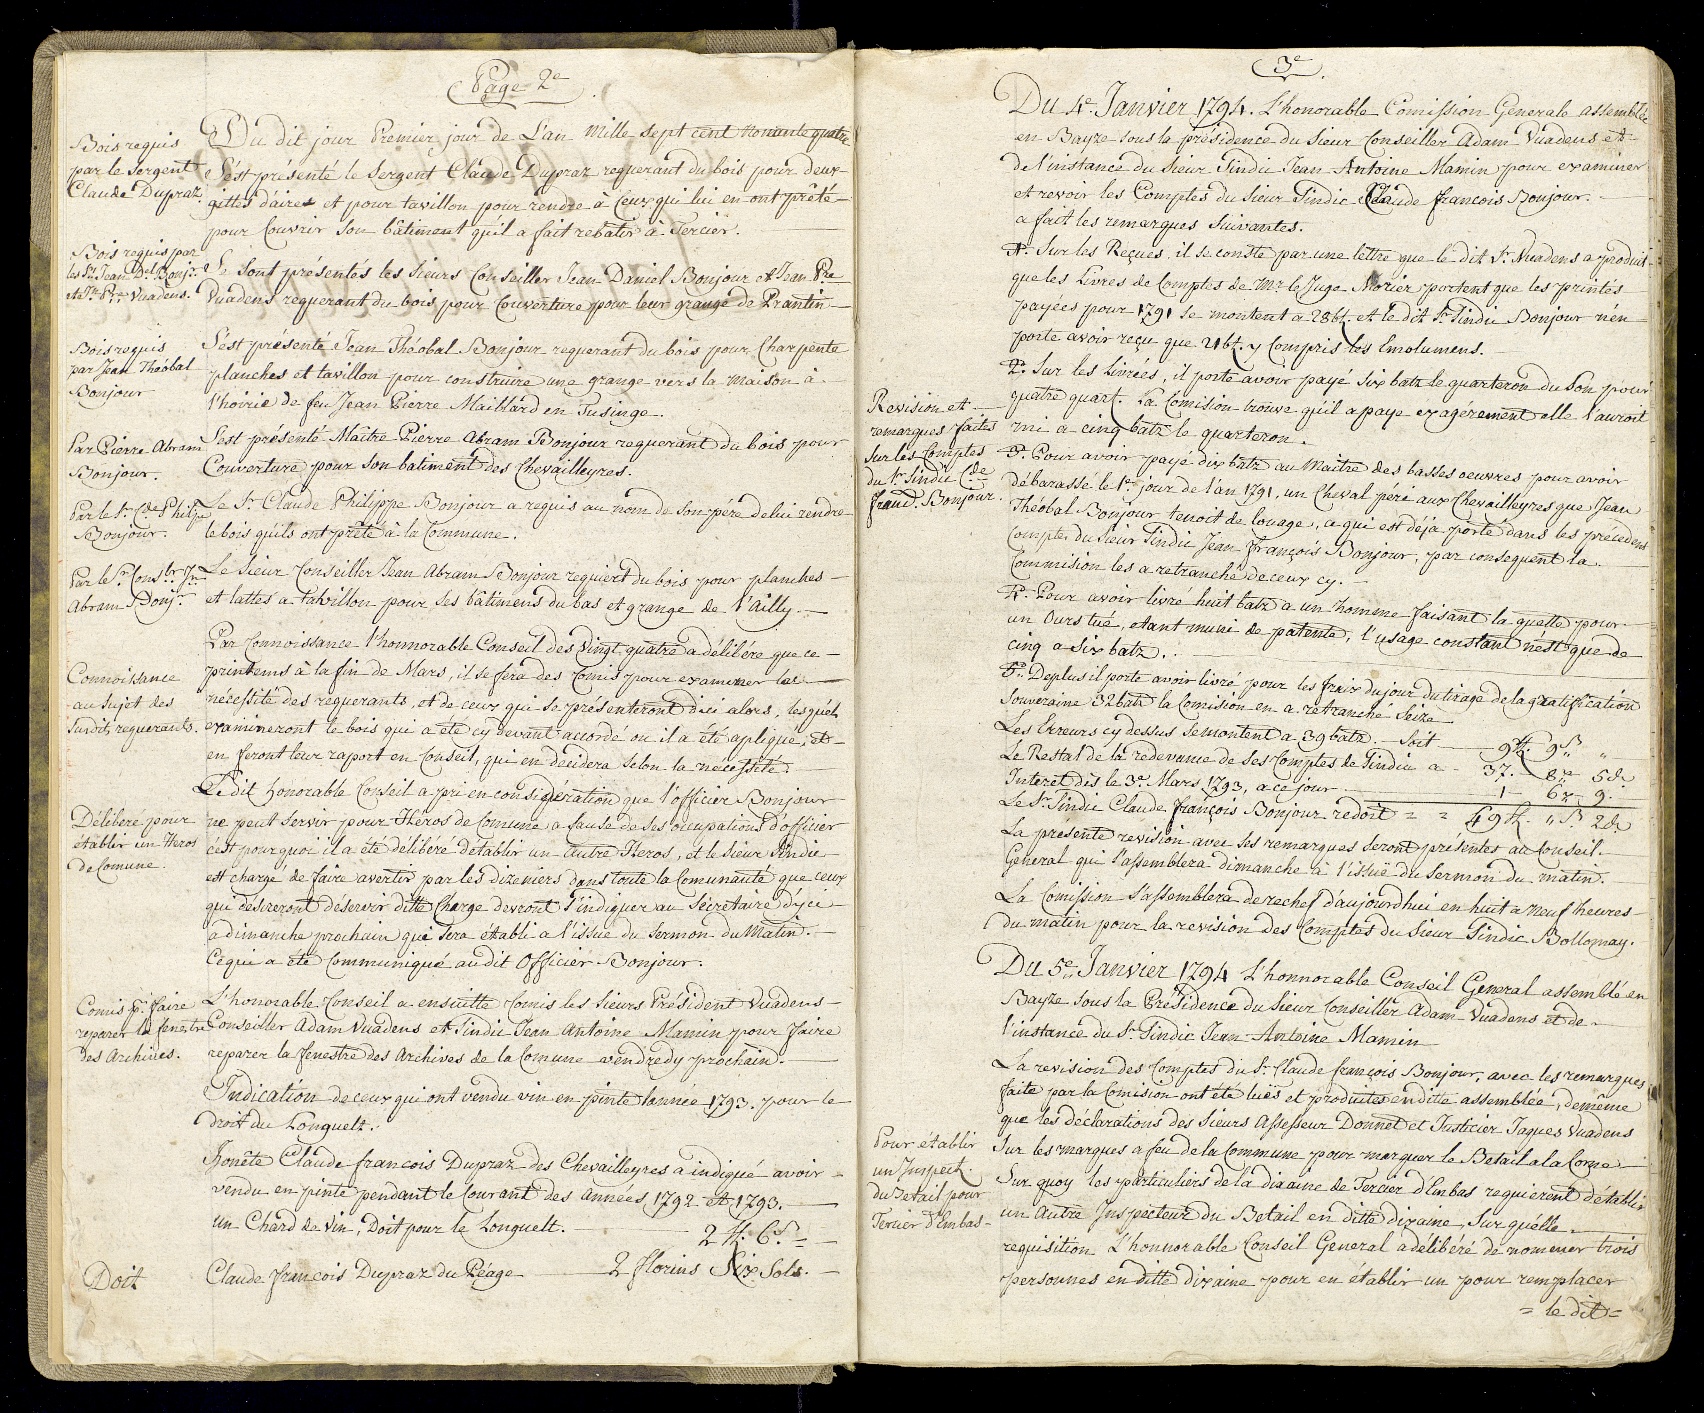 Page 2e
Bois requis
par le Sergent
Claude Dupraz.
Du dit jour Premier jour de L'an Mille Sept cent Nonante quatre
S'est présenté le Sergent Claude Dupraz requerant du bois pour deux
gittes d'aires et pour tavillon pour rendre à Ceux qui lui en ont prêté
pour Couvrir Son bâtiment qu'il a fait rebatir à Tercier.
Bois requis par
les Srs Jean Del Bonjr
et Jn Pre Vuadens.
Se Sont présentés les Sieurs Conseiller Jean Daniel Bonjour et Jean Pre
Vuadens requerant du bois pour Couverture pour leur grange de Prantin
Bois requis
par Jean Théobal
Bonjour
S'est présenté Jean Théobal Bonjour requerant du bois pour Charpente
planches et tavillon pour construire une grange vers la maison à
l'hoirie de feu Jean Pierre Maillard en Fusinge.
Par Pierre Abram
Bonjour.
S'est présenté Maître Pierre Abram Bonjour requerant du bois pour
Couverture pour Son batiment des Chevailleyres.
Par le Sr Cde Philipe
Bonjour.
Le Sr Claude Philippe Bonjour a requis au nom de Son pére de lui rendre
le bois qu'ils ont prêté à la Commune.
Par le Sr Conser Jn
Abram Bonjr
Le Sieur Conseiller Jean Abram Bonjour requiert du bois pour planches
et lattes a tahvillon pour Ses bâtimens du bas et grange de l'Ailly.
Connoissance
au Sujet des
Susdits requerants.
Par Connoissance l'honnorable Conseil des Vingt quatre a délibére que ce
printems à la fin de Mars, il se fera des Comis pour examiner les
nécessité des requerants, et de ceux qui Se présenteront d'ici alors, lesquels
examineront le bois qui a été cy devant accordé ou il a été apliqué, et
en feront leur raport en Conseil, qui en décidera Selon la nécessité.
Délibéré pour
établir un Heros
de Comune.
Le dit honorable Conseil a pri en considération que l'officier Bonjour
ne peut Servir pour Héros de Comune a Cause de Ses ocupations d'officier
c'est pourquoi il a été délibéré d'établir un autre Heros, et le Sieur Sindic
est chargé de faire avertir par les dizeniers dans toute la Comunauté que ceux
qui desireront déservir ditte Charge devront S'indiquer au Sécretaire d'yci
a dimanche prochain qui Sera établi a l'issue du Sermon du Matin.
Ce qui a été Communiqué au dit Officier Bonjour.
Comis pr faire
reparer la fenestre
des Archives.
L'honorable Conseil a ensuitte Comis les Sieurs Président Vuadens
Conseiller Adam Vuadens et Sindic Jean Antoine Mamin pour faire
reparer la fenestre des Archives de la Comune vendredy prochain.
Indication de ceux qui ont vendu vin en pinte l'année 1793. pour le
droit du Longuelt.
Honête Claude francois Dupraz des Chevailleyres a indiqué avoir
vendu en pinte pendant le Courant des années 1792 et 1793.
un Chard de Vin, Doit pour le Longuelt. 2 fl. 6 s.
Doit
Claude francois Dupraz du Péage 2 florins Six Sols.
3e
Du 4e Janvier 1794. L'honorable Comission Generale assemblée
en Bayze sous la présidence du Sieur Conseiller Adam Vuadens et
de l'instance du Sieur Sindic Jean Antoine Mamin pour examiner
et revoir les Comptes du Sieur Sindic Claude françois Bonjour.
a fait les remarques Suivantes.
1o. Sur les Reçues, il se conste par une lettre que le dit Sr Vuadens a produit
que les Livres de Comptes de Mr le Juge Morier portent que les printés
payées pour 1791 Se montent a 28 bz. et le dit Sr Sindic Bonjour n'en
porte avoir reçu que 21 bz. y Compris les Emolumens.
Revision et
remarques faites
Sur les Comptes
du Sr Sindic Cde
franc. Bonjour.
2o. Sur les Livrées, il porte avoir payé Six batz le quarteron du Son pour
quatre quart. La Comision trouve qu'il a payé exagérement elle l'auroit
mi a cinq batz le quarteron.
3o. Pour avoir payé dix batz au Maitre des basses oeuvres pour avoir
débarassé le 1er jour de l'an 1791, un Cheval péri aux Chevailleyres que Jean
Théobal Bonjour tenoit de louage, a qui est déjà porté dans les précédens
Comptes du Sieur Sindic Jean François Bonjour, par consequent la
Commision les a retranché de ceux cy.
4o. Pour avoir livré huit batz a un homme faisant la quette pour
un Ours tué, etant muni de patente, l'usage constant n'est que de
cinq a Six batz.
5o. De plus il porte avoir livré pour les fraix du jour du tirage de la gratification
Souveraine 32 batz la Comision en a retranché Seize
Les Erreurs cy dessus Se montent a 39 batz. Soit 9 fl. 9 s "
Le Restat de la redevance de Ses Comptes de Sindic a 37. 8 " 5 dr
Interet dès le 3e Mars 1793, a ce jour 1 " 6 " 9.
Le Sr Sindic Claude François Bonjour redoit = = 49 fl. " s 2 dr
La presente revision avec ses remarques Seront présentés au Conseil
General qui S'assemblera dimanche à l'issuë du Sermon du matin.
La Comission S'assemblera derechef d'aujourdhui en huit a Neuf heures
du matin pour la revision des Comptes du Sieur Sindic Bollomay.
Du 5e Janvier 1794 L'honnorable Conseil General assemblé en
Bayze sous la Présidence du Sieur Conseiller Adam Vuadens et de
l'instance du Sr Sindic Jean Antoine Mamin
La revision des Comptes du Sr Claude françois Bonjour, avec les remarques
faite par la Comision ont été luës et produites en ditte assemblée, de même
que les déclarations des Sieurs Assesseur Donnet et Justicier Jaques Vuadens
Sur les marques a feu de la Commune pour marquer le Betail a la Corne
Pour établir
un Inspect.
du Betail pour
Tercier d'Embas
Sur quoy les particuliers de la dixaine de Tercier d'Embas requierent d'établir
un autre Inspecteur du Betail en ditte dixaine, Sur quelle
requisition L'honnorable Conseil General a délibéré de nommer trois
personnes en ditte dixaine pour en établir un pour remplacer
= le dit =